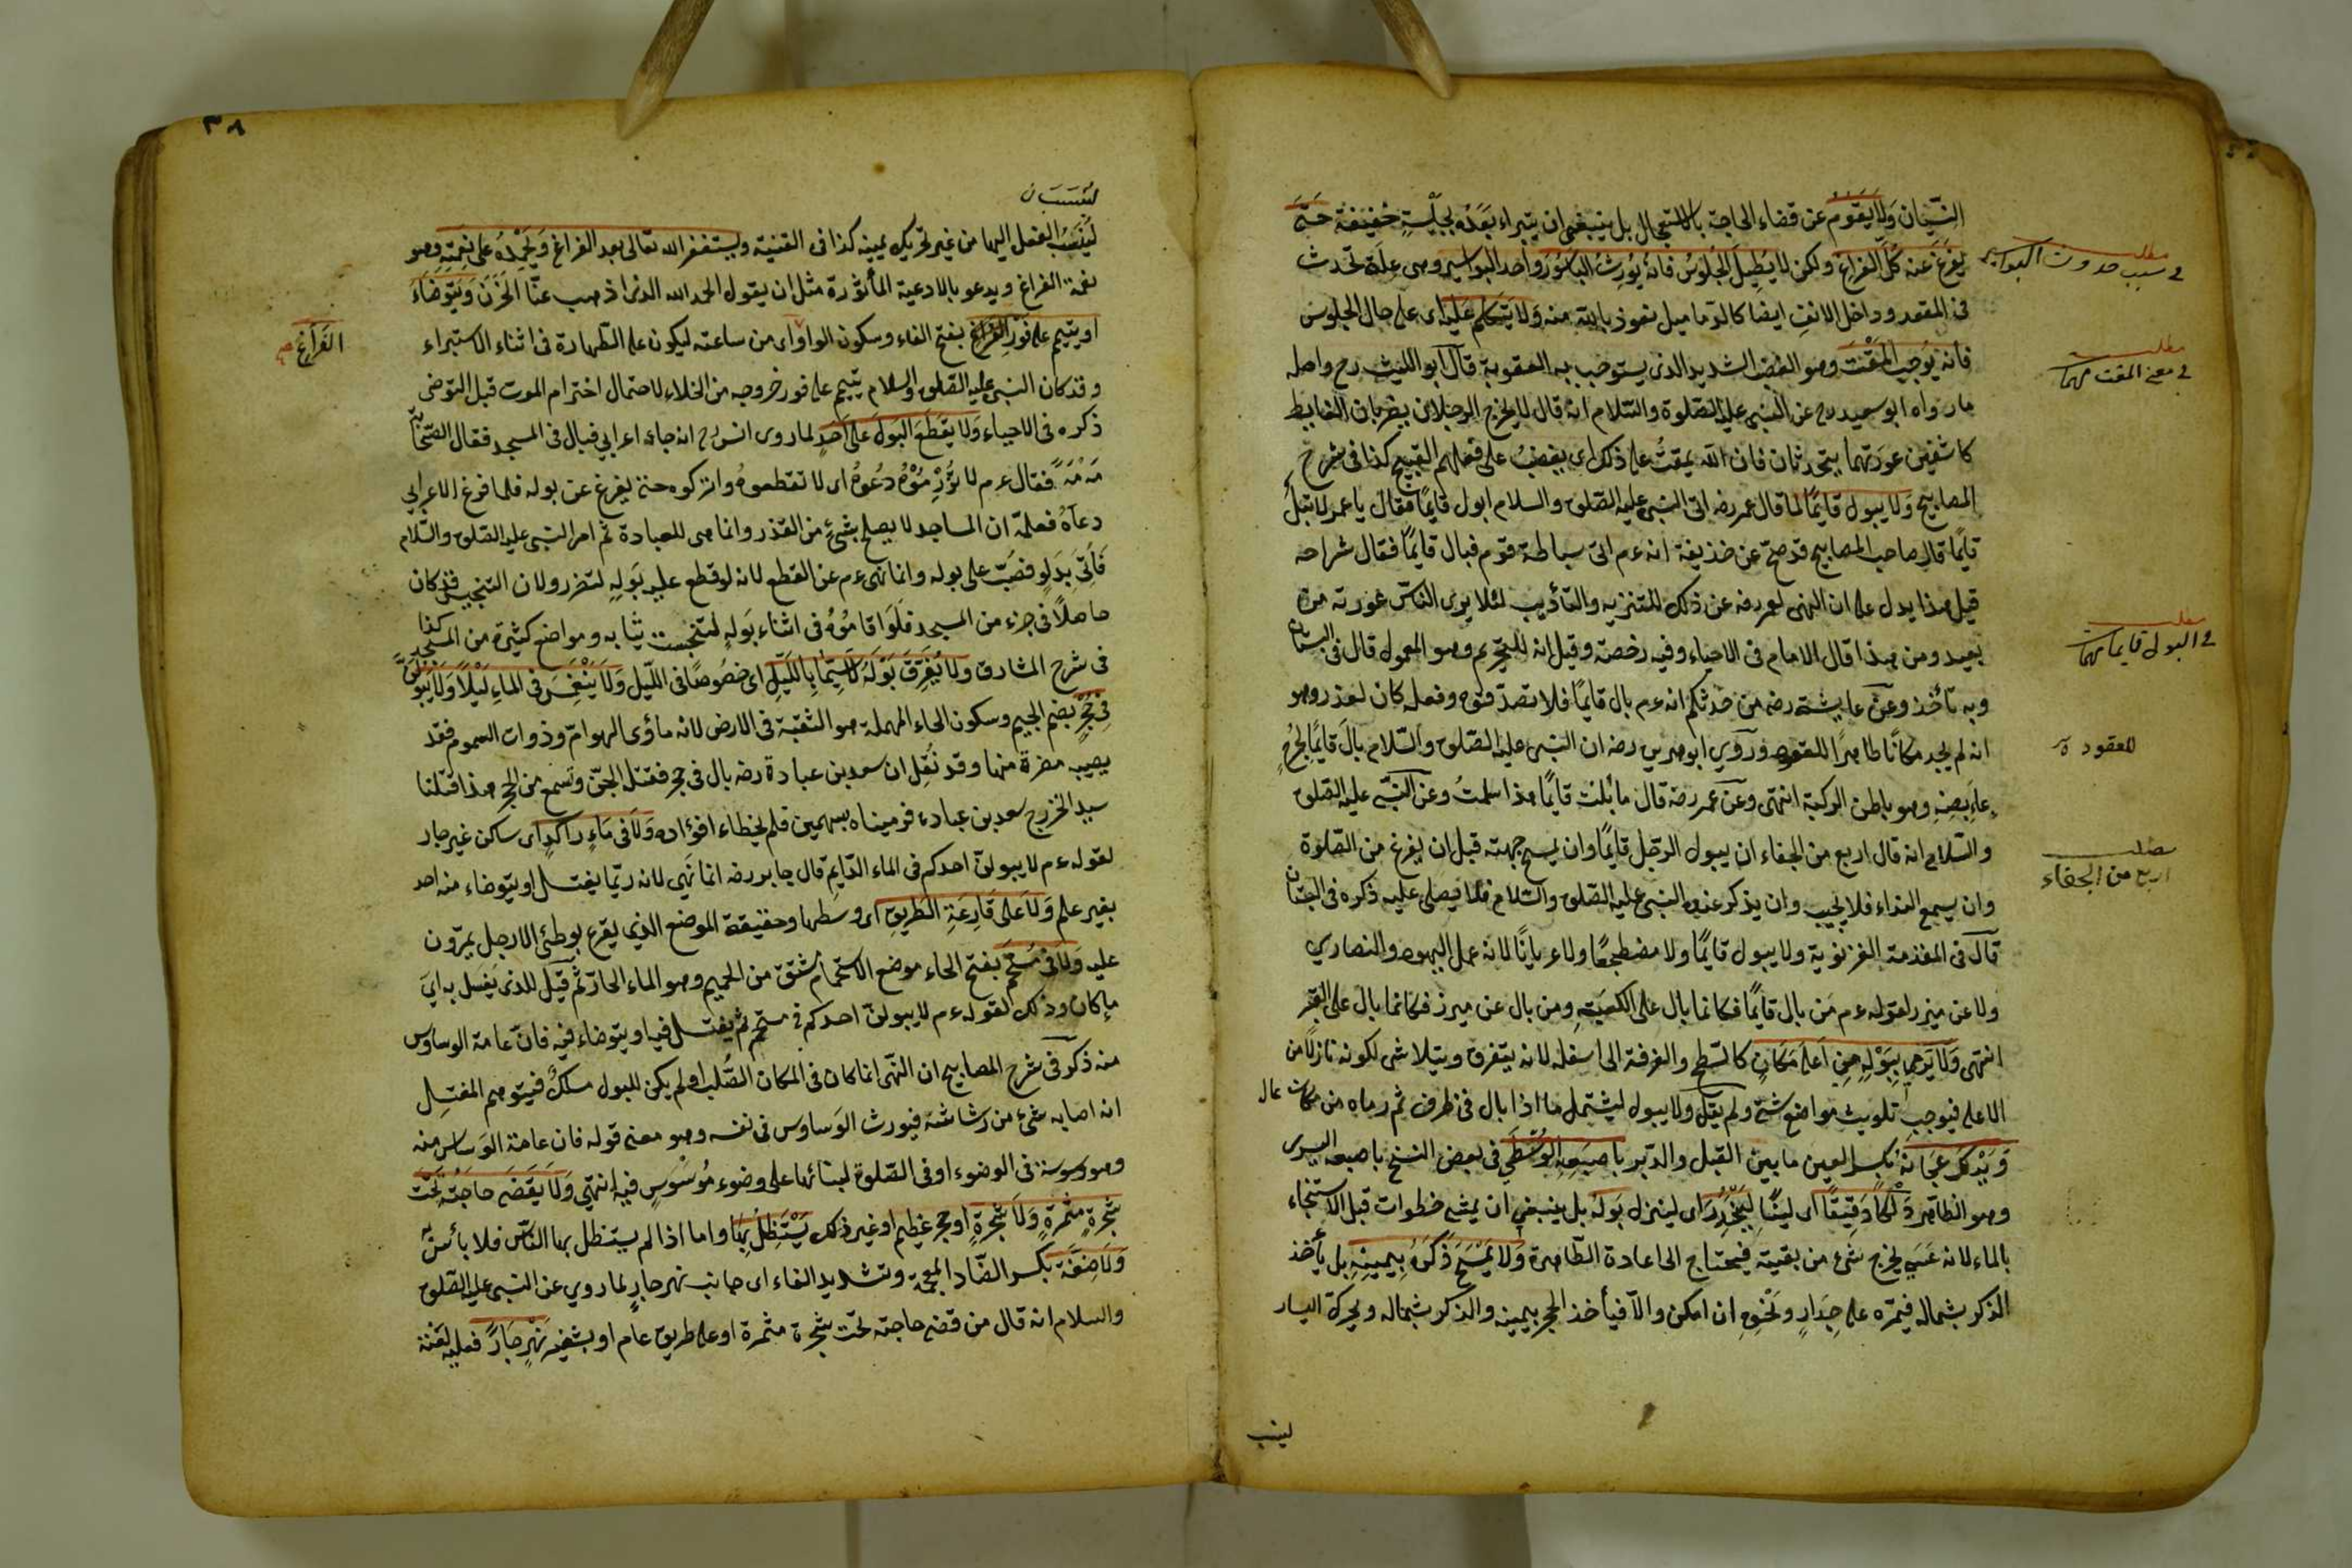 النسيان وَلَا يَقُومُ عن قضاء الحاجة بالاستعجال بل ينبغى ان يتبراء بَعْدَهُ بجِلْسَةٍ خَفِيفَة حَتَّى
يَفرُغَ عنه كُلَّ الفَراغِ ولكن لا يُطِيلَ الجُلوُسَ فانه يُورِثُ البَاسُورَ واحد البواسير وهى علة تحدث
فى المقعد وداخل الانف ايضا كالدماميل نعوذ بالله منه وَلَا يَتَكلَّم عَلَيه اى على حال الجلوس
فانه يُوجِبُ المَقْتَ وهو الغضب الشديد الذى يستوجب به العقوبة قال ابو الليث رح واصله
ما رواه ابو سعيد رح عن النبى عليه الصلوة والسلام انه قال لا يخرج الرجلان يضربان الغايط
كاشفين عورتهما يتحدثان فان الله يمقتُ على ذلك اى يغضبُ على فعلهم القبيح كذا فى شرح
المصابيح وَلا يبول قايمًا لما قال عمر رضه اتى النبى عليه الصلوة والسلام ابول قايمًا فقال يا عمر لا تبُل
قايمًا قال صاحب المصابيح قد صح عن حذيفة انه ءم اتى سباطة قوم فبال قايمًا فقال شراحه
قيل هذا يدل على ان النهى لعمر رضه عن ذلك للتنزيه والتأديب لئلا يرى الناس عورته من
بعيد ومن هذا قال الامام فى الاحياء وفيه رخصة وقيل انه للتحريم وهو المعمول قال فى البستان
وبه نأخذ وعن عايشة رضه من حدثكم انه ءم بال قايمًا فلا تصدقوه وفعله كان لعذر وهو
انه لم يجد مكانًا طاهرًا للقعود وروى ابو هريرة رضه ان النبى عليه الصلوة والسلام بال قايمًا لجُرحٍ
بمأبِضِهِ وهو باطن الركبة انتهى وعن عمر رضه قال ما بُلت قايمًا منذ اسلمتُ وعن النبى عليه الصلوة
والسلام انه قال اربع من الجفاء ان يبول الرجل قايمًا وان يمسح جبهته قبل ان يفرغ من الصلوة
وان يسمع النداء فلا يجيب وان يذكر عنده النبى عليه الصلوة والسلام فلا يصلى عليه ذكره فى البستان
قال فى المقدمة الغزنوية ولا يبول قايمًا ولا مضطجعًا ولا عريانًا لانه عمل اليهود والنصارى
ولا عن ميزر لقوله ءم من بال قايمًا فكانما بال على الكعبة ومن بال عن ميزر فكانما بال على القبر
انتهى وَلَا يَرْمِى بِبَوْلِهِ مِن اَعلَى مَكانٍ كالسطح والغرفة الى اسفله لانه يتفرق ويتلاشى لكونه نازلًا من
الاعلى فيوجب تلويث مواضع شتى ولم يقل ولا يبول ليشتمل ما اذا بال فى ظرف ثم رماه من مكان عال
وَيَدْلكُ عِجَانَهُ بكسر العين ما بين القبل والدبر باصبعه الوُسْطَى فى بعض النسخ باصبعه اليسرى
وهو الظاهر دَلْكًا رَقِيقًا اى لينًا لِيَنْحَدِرَ اى لينزل بَولُهُ بل ينبغى ان يمشى خطوات قبل الاستنجاء
بالماء لانه عَسَى يخرج شئ من بقيته فيحتاج الى اعادة الطاهرة وَلا يَمْسَحُ ذَكَرَهُ بِيَمِينِهِ بل يأخذ
الذكر بشماله فيمره على جِدَارٍ ونَحْوِهِ ان امكن والا فيأخذ الحجر بيمينه والذكر بشماله ويحرك اليسار
لينسب
مطلب
فى سبب حدوث البواسير
مطلب
فى معنى المقت مهما
مطلب
فى البول قايما مهما
للقعود
مطلب
اربع من الجفاء
٣٨
ليُنسَبُ الفعل اليها من غير تحريك يمينه كذا فى القنية ويستغفر الله تعالى بعد الفراغ وَيَحْمِدُهُ على نِعْمَتِهِ وهو
نعمة الفراغ ويدعو بالادعية المأثورة مثل ان يقول الحمد لله الذى اذهب عنّا الحَزَن وَيَتَوضَّأُ
او يتيمم على فَوْرِ الفَراغِ بفتح الفاء وسكون الواو اى من ساعته ليكون على الطهارة فى اثناء الاستبراء
وقد كان النبى عليه الصلوة والسلام يتيمم على فور خروجه من الخلاء لاحتمال اخترام الموت قبل التوضى
ذكره فى الاحياء وَلَا يَقْطَعُ البَوْلَ عَلَى اَحدٍ لما روى انس رح انه جاء اعرابي فبال فى المسجد فقال الصحابة
مَهْ مَهْ فقال ءم لا تُزْرِمُوْهُ دُعُوهُ اى لا تقطعوهُ واتركوه حتى يفرغ عن بوله فلما فرغ الاعرابى
دعاهُ فعلّمه ان المساجد لا يصلح بشئٍ من القذر وانما هى للعبادة ثم امر النبى عليه الصلوة والسلام
فَأُتِىَ بِدَلوٍ فصُبّ على بوله وانما نهى ءم عن القطع لانه لو قطع عليه بَوْلِهِ لتضرر ولان التنجيس قد كان
حاصلًا فى جزء من المسجد فلَوْ اقامُوُهُ فى اثناء بَولِهِ لتنجست ثيابه ومواضع كثيرة من المسجد كذا
فى شرح المشارق ولا يُفَرِّقُ بَوْلَهُ لَا سِيَّمَا بِاللَّيْلِ اى خصُوصًا فى الليل وَلَا يَنْغَمِسُ فى الماءِ لَيْلًا وَلَا يَبُولُ
فِى جُحْرٍ بضم الجيم وسكون الحاء المهملة هو الثقبة فى الارض لانه مأوى الهوام وذوات السموم فقد
يصيب مضرة منها وقد نُقِل ان سعد بن عبادة رضه بال فى جحر فقتله الجن وتسمع من الجحر هذا قتلنا
سيد الخزرج سعد بن عبادة فرميناه بسهمين فلم يخطاء افؤاده وَلَا فى مَاءٍ راكدٍ اى ساكن غير جار
لقوله ءم لا يبولن احدكم فى الماء الدايم قال جابر رضه انما نهى لانه ربّما يغتسل او يتوضاء منه احد
بغير علم وَلَا عَلَى قَارِعَةِ الطَّرِيقِ اى وسطها وحقيقة الموضع الذى يقرع بوطئ الارجل يمرّون
عليه وَلَا فى مُسْتَحَمٍّ بفتح الحاء موضع الاستحمام مشتق من الحميم وهو الماء الحارّ ثم قيل للذى يغسل به اىّ
ما كان وذلك لقوله ءم لا يبولنّ احدكم فى مستحم ثم يغتسل فيه او يتوضاء فيه فانّ عامة الوساوس
منه ذكر فى شرح المصابيح ان النهى انما كان فى المكان الصُّلب او لم يكن للبول مسلكٌ فيتوهم المغتسِل
انه اصابه شئ من رشاشته فيورث الوَساوس فى نفسه وهو معنى قوله فان عامة الوَسواس منه
وهو وسوسة فى الوضوء او فى الصلوة لبنائها على وضوء مُوَسْوَسٍ فيه انتهى وَلَا يَقْضِى حَاجَتَهُ تَحْتَ
شَجَرَةٍ مثمرةٍ وَلَا شَجَرَةٍ او حجر عظيم او غير ذلك يَسْتَظِلُّ بِهَا واما اذا لم يستظل بها الناس فلا بأس به
وَلَا ضِفَّةَ بكسر الضّاد المعجمة وتشديد الفاء اى جانب نهر جارٍ لما روى عن النبى عليه الصلوة
والسلام انه قال من قضى حاجته تحت شجرة مثمرة او على طريق عام او بشفير نَهْرٍ جَارٍ فعليه لعنة
الفَراغِ صح